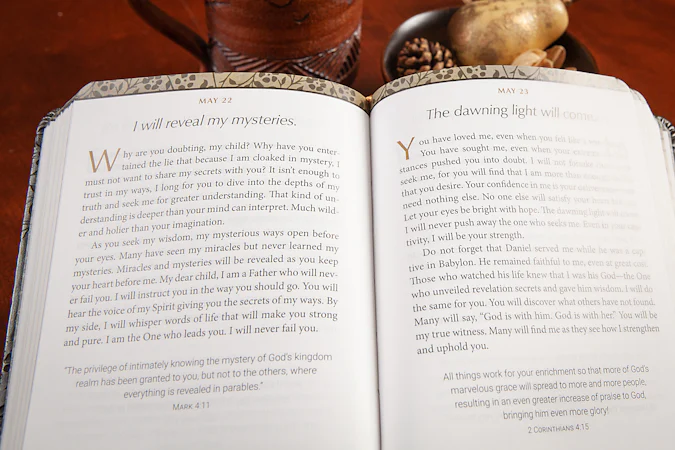 MAY 22
I will reveal my mysteries.
Why are you doubting, my child? Why have you enter-
tained the lie that because I am cloaked in mystery, I
must not want to share my secrets with you? It isn't enough to
trust in my ways, I long for you to dive into the depths of my
truth and seek me for greater understanding. That kind of un-
derstanding is deeper than your mind can interpret. Much wild-
er and holier than your imagination.
As you seek my wisdom, my mysterious ways open before
your eyes. Many have seen my miracles but never learned my
mysteries. Miracles and mysteries will be revealed as you keep
your heart before me. My dear child, I am a Father who will nev-
er fail you. I will instruct you in the way you should go. You will
hear the voice of my Spirit giving you the secrets of my ways. By
my side, I will whisper words of life that will make you strong
and pure. I am the One who leads you. I will never fail you.
"The privilege of intimately knowing the mystery of God's kingdom
realm has been granted to you, but not to the others, where
everything is revealed in parables."
MARK 4:11
MAY 23
The dawning light will come.
You have loved me, even when you felt like
You have sought me, even when your
stances pushed you into doubt. I will not
seek me, for you will find that I am more
that you desire. Your confidence in me is your
need nothing else. No one else will satisfy your
Let your eyes be bright with hope. The dawning light will
I will never push away the one who seeks me. Even in your cap-
tivity, I will be your strength.
Do not forget that Daniel served me while he was a cap-
tive in Babylon. He remained faithful to me, even at great cost.
Those who watched his life knew that I was his God—the One
who unveiled revelation secrets and gave him wisdom. I will do
the same for you. You will discover what others have not found.
Many will say, "God is with him. God is with her." You will be
my true witness. Many will find me as they see how I strengthen
and uphold you.
All things work for your enrichment so that more of God's
marvelous grace will spread to more and more people,
resulting in an even greater increase of praise to God,
bringing him even more glory!
2 CORINTHIANS 4:15